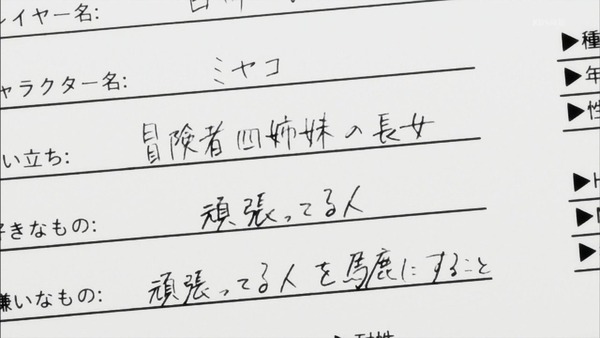 レイヤー名:
ャラクター名: ミヤコ
い立ち: 冒険者四姉妹の長女
好きなもの: 頑張ってる人
嫌いなもの: 頑張ってる人を馬鹿にすること
▶種
▶年
▶性